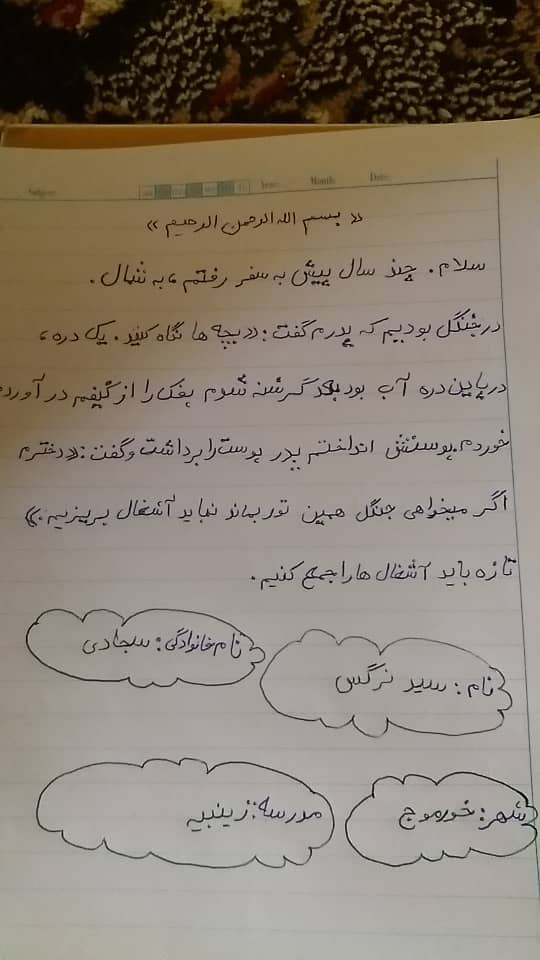 Subject:
Year:   Month:   Date:
«بسم الله الرحمن الرحیم»
سلام. چند سال پیش به سفر رفتم، به شمال.
در جنگل بودیم که پدرم گفت: «بچه ها نگاه کنید. یک دره،
در پایین دره آب بود گرسنه شوم پفک را از کیفم در آورد
خوردم. پوستش انداختم پدر پوست را برداشت و گفت: «دخترم
اگر میخواهی جنگل همین تور بماند نباید آشغال بریزیم.»
تازه باید آشغال ها را جمع کنیم.
نام خانوادگی: سجادی
نام: سید نرگس
شهر: خورموج
مدرسه: زینبیه